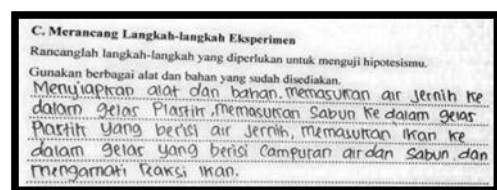 C. Merancang Langkah-langkah Eksperimen
Rancanglah langkah-langkah yang diperlukan untuk menguji hipotesismu.
Gunakan berbagai alat dan bahan yang sudah disediakan.
Menyiapkan alat dan bahan, memasukan air jernih ke
dalam gelas Plastik, memasukan Sabun ke dalam gelas
Plastik yang berisi air jernih, memasukan Ikan ke
dalam gelas yang berisi campuran air dan sabun, dan
mengamati Reaksi Ikan.